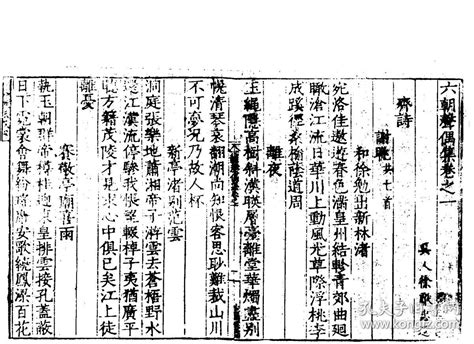 六朝聲偶集卷之一
吳人徐獻忠
齊詩
謝朓 共七首
和徐勉出新林渚
宛洛佳遨遊春色滿皇州結軫青郊曲迴
瞰滄江流日華川上動風光草際浮桃李
成蹊徑桑榆蔭道周
離夜
玉繩隱高樹斜漢映層臺離堂華燭盡別
幌清琴哀翻潮尚知恨客思眇難裁山川
不可夢况乃故人杯
新亭渚別范雲
洞庭張樂地蕭湘帝子遊雲去蒼梧野水
還江漢流停驂我悵望輟棹子夷猶廣平
聽方籍茂陵才見求心中俱已矣江上徒
離憂
賽敬亭廟喜雨
執玉朝群帝樽桂迎東皇排雲接孔蓋蔽
日下霓裳會舞紛瑤席安歌繞鳳梁百花